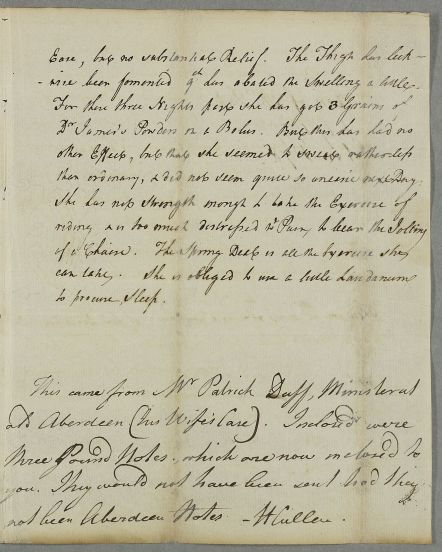 Ease, but no substantial Relief. The Thigh has lick-
-wise been fomented wch has abated the Swelling a little.
For these three Nights past she has got 3 Grains of
Dr James's Powders in a Bolus. But this has had no
other Effect, but that she seemed to sweat rather less
than ordinary, & did not seem quite so uneasie next Day.
She has not Strength enough to take the Exercise of
riding & is too much distressed wt Pain, to bear the Jolting
of a Chaise. The Spring Deal is all the Exercise she
can take. She is obliged to use a little Laudanum
to procure Sleep.
This came from Mr Patrick Duff, Minister at
old Aberdeen (his Wife's Case). Inclosd were
three Pound Notes, which are now inclosed to
you. They would not have been sent had they
not been Aberdeen Notes - WCullen.